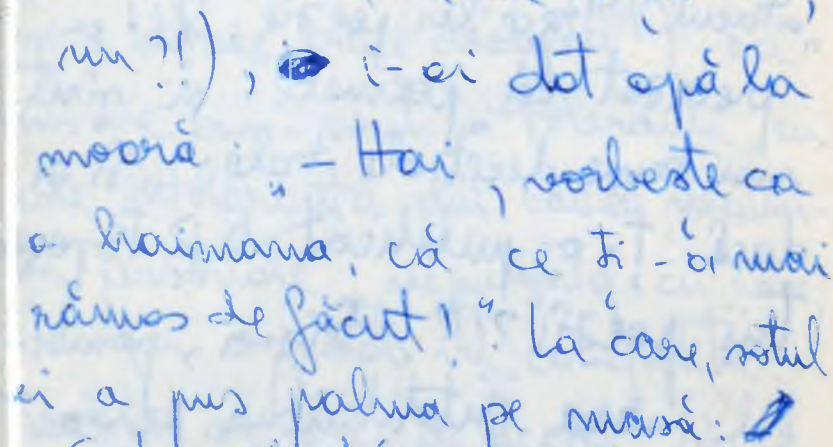 nu ?!), i-ai dat apă la
moară: „– Hai, vorbește ca
o haimana, că ce ți-a mai
rămas de făcut!“ La care, soțul
ei a pus palma pe masă: